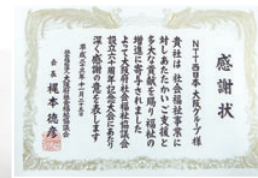 感謝状
NTT西日本 大阪グループ様
貴社は 社会福祉事業に
対しあたたかいご支援と
多大な貢献を賜り 福祉の
増進に寄与されました
よって大阪府社会福祉協議会
設立六十周年記念大会にあたり
深く感謝の意を表します
平成二十三年十一月二十五日
社会福祉法人大阪府社会福祉協議会
会長 梶本徳彦